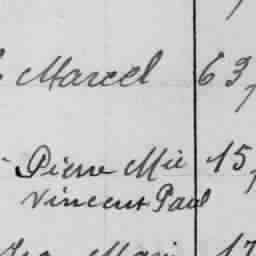 Marcel 63,
Pierre Mie 15,
Vincent Paul
Marie 17